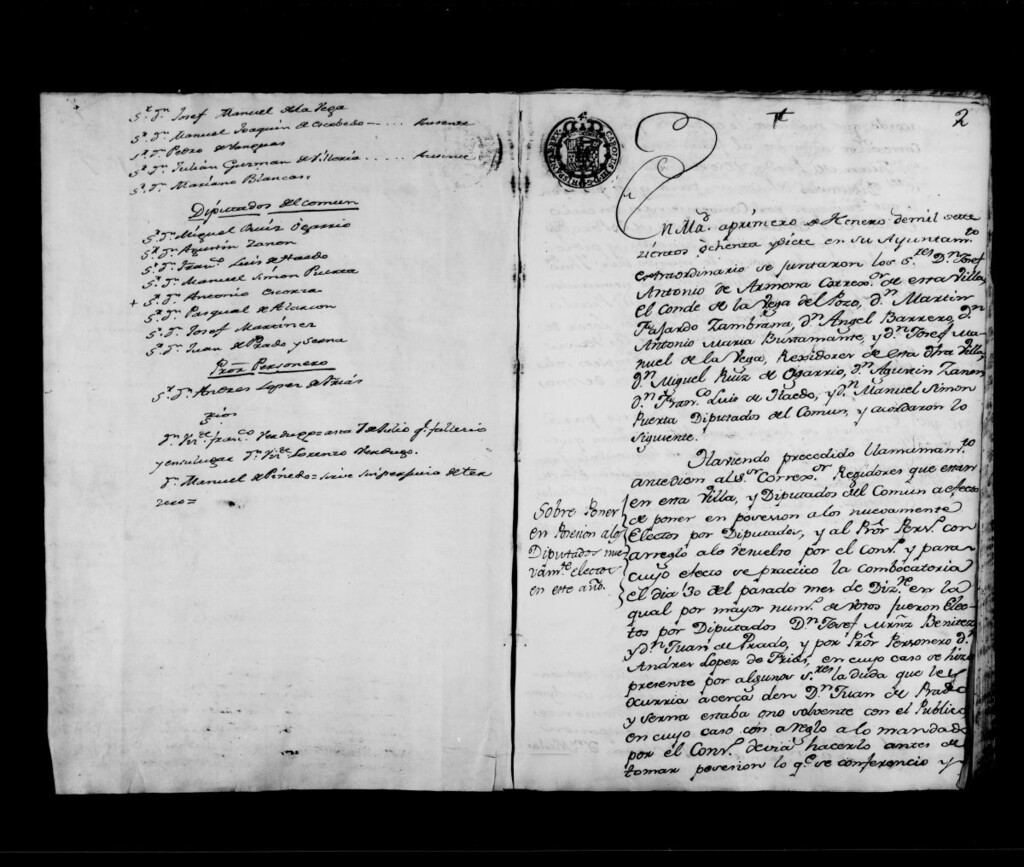 S.r D.n Josef Manuel de la Vega
S.r D.n Manuel Joaquin de Escobedo - .... Ausente
S.r D.n Pedro de
S.r D.n Julián Guzman de Villoria ..... Ausente
S.r D.n Mariano Blancas.
Diputados del comun
S.r D.n Miguel Ruiz Ogarrio
S.r D.n Agustin Zanon
S.r D.n Fran.co Luis de Haedo
S.r D.n Manuel Simon Puerta
+ S.r D.n Antonio Escorza
S.r D.n Pasqual de Alarcon
S.r D.n Josef Martinez
S.r D.n Juan de Prado y Serna
Pror Personero
S.r D.n Andres Lopez de Frias
D.n Vic.te Fran.co Verdugo = asta 7 de Julio q.e fallecio
y en su lugar D.n Vic.te Lorenzo Verdugo.
D.n Manuel de Pinedo = sirve sin perjuicio de ter
zero =
2
En Mad. a primero de Henero de mil sete
zientos ochenta y siete en su Ayuntam.to
extraordinario se juntaron los S.res D.n Josef
Antonio de Armona Correx.or de esta Villa,
el Conde de la Vega del Pozo, d.n Martin
Fajardo Zambrana, d.n Angel Barrero, d.n
Antonio Maria Bustamante, y d.n Josef Ma-
nuel de la Vega, Rexidores de esta dha Villa,
d.n Miguel Ruiz de Ogarrio, d.n Agustin Zanon
d.n Fran.co Luis de Haedo, y d.n Manuel Simon
Puerta Diputados del Comun, y acordaron lo
siguiente.
Haviendo precedido llamamm.to
antediem al s.or Correx.or Regidores que estan
en esta Villa, y Diputados del Comun a efecto
de poner en posesion a los nuevamente
Electos por Diputados, y al Pror Pers.o con
arreglo a lo resuelto por el Cons.o y para
cuyo efecto se practicó la combocatoria
el dia 30 del pasado mes de Diz.re en la
qual por mayor num.o de votos fueron Elec-
tos por Diputados D.n Josef Mrnz Benitez
y d.n Juan de Prado, y por Pror Personero d.n
Andres Lopez de Frias, en cuyo caso se hizo
presente por algunos s.res la duda que les
ocurria acerca de si D.n Juan de Prado
y Serna estaba o no solvente con el Publico
en cuyo caso con arreglo a lo mandado
por el Cons.o devia hacerlo antes de
tomar posesion lo q.e se conferencio y
Sobre Poner
en Posesion a los
Diputados nue
vam.te electos
en este año.